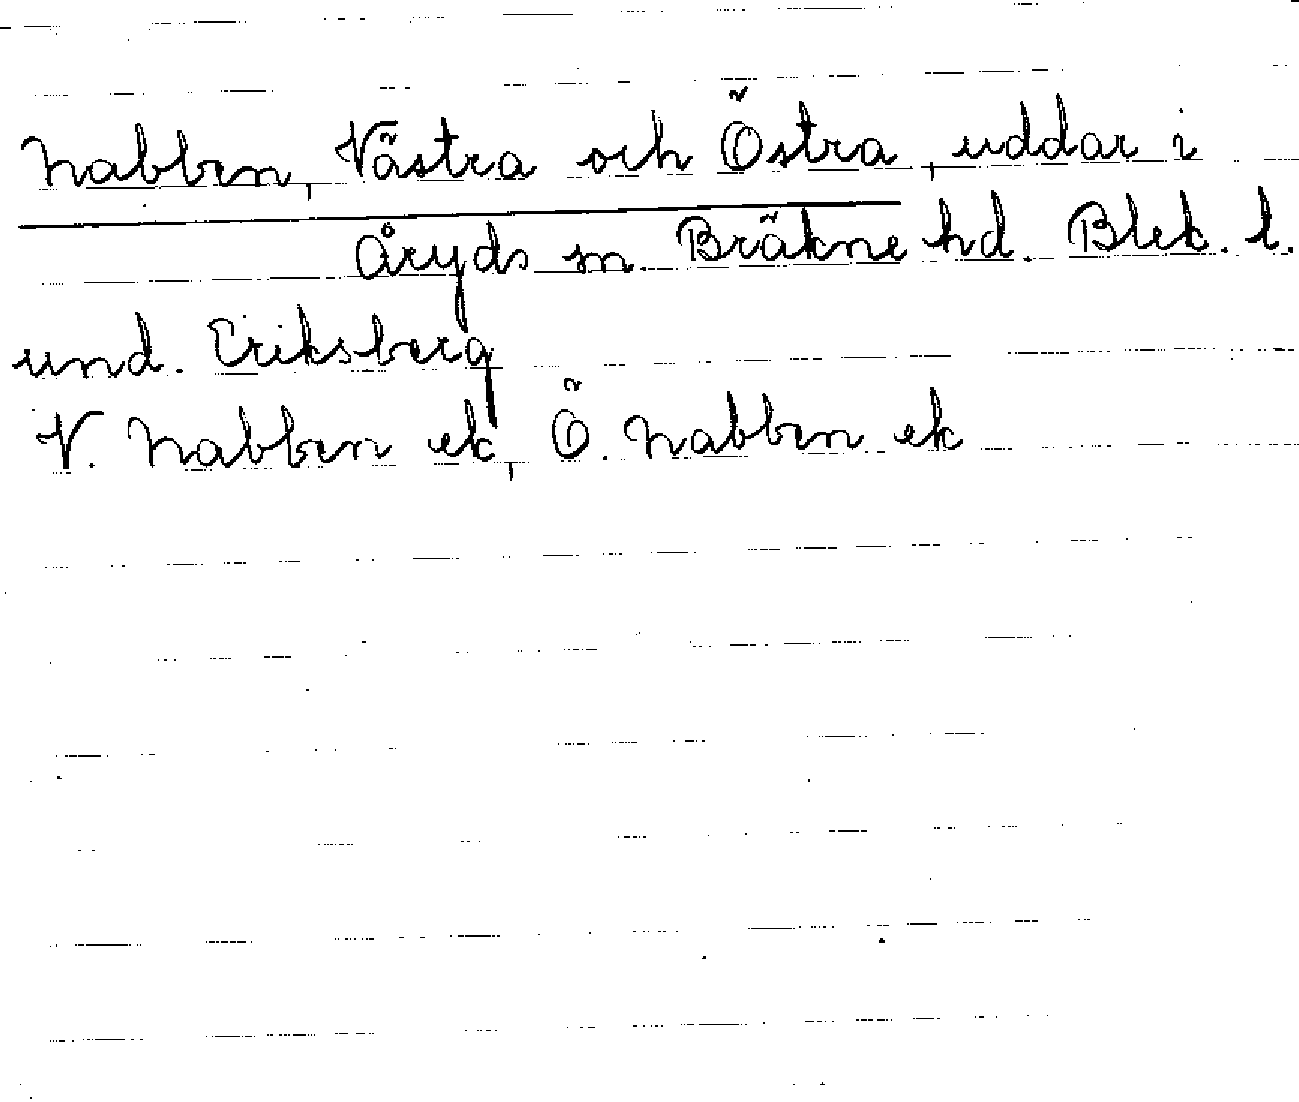 Nabben, Västra och Östra, uddar i
Åryds sn. Bräkne hd. Blek. l.
und. Eriksberg
V. Nabben ek, Ö. Nabben ek